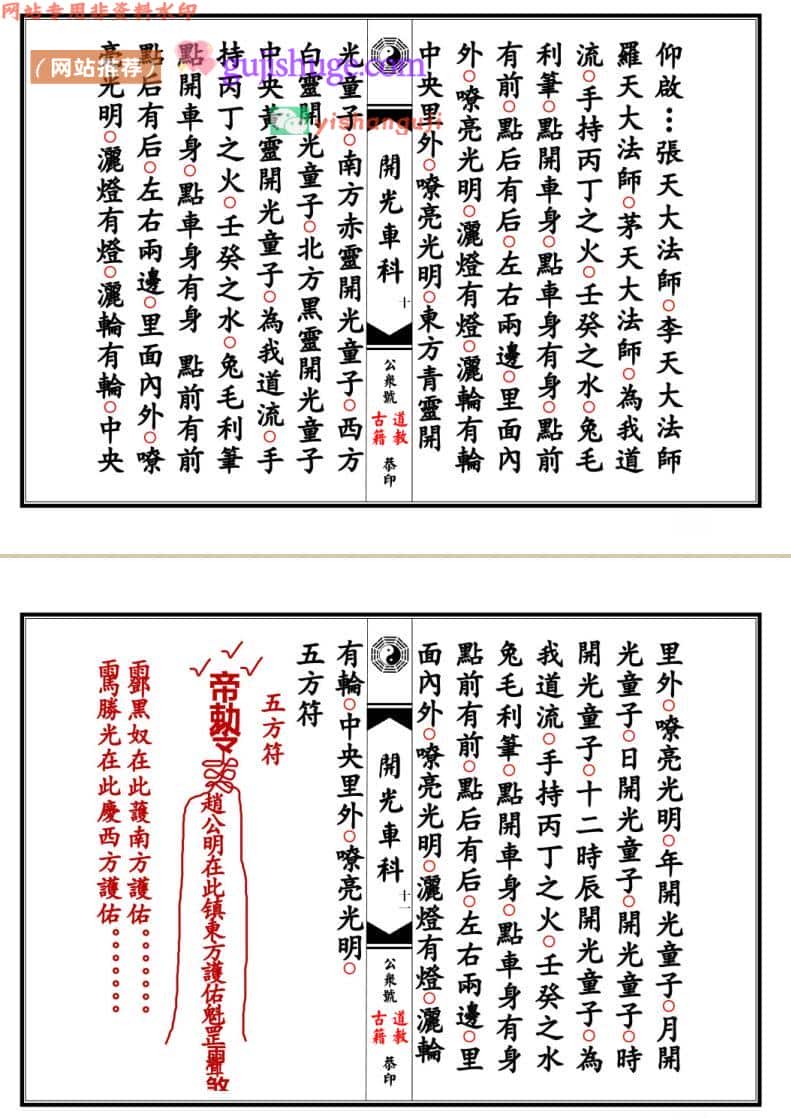 网站专用非资料水印
（网站推荐）
gujishuge.com
yishanguji
仰啟：張天大法師○李天大法師
羅天大法師○茅天大法師○為我道
流○手持丙丁之火○壬癸之水○兔毛
利筆○點開車身○點車身有身○點前
有前○點后有后○左右兩邊○里面內
外○嘹亮光明○灑燈有燈○灑輪有輪
中央里外○嘹亮光明○東方青靈開
開光車科
十
公衆號
道教
古籍
恭印
光童子○南方赤靈開光童子○西方
白靈開光童子○北方黑靈開光童子
中央黃靈開光童子○為我道流○手
持丙丁之火○壬癸之水○兔毛利筆
點開車身○點車身有身 點前有前
點后有后○左右兩邊○里面內外○嘹
亮光明○灑燈有燈○灑輪有輪○中央
里外○嘹亮光明○年開光童子○月開
光童子○日開光童子○開光童子○時
開光童子○十二時辰開光童子○為
我道流○手持丙丁之火○壬癸之水
兔毛利筆○點開車身○點車身有身
點前有前○點后有后○左右兩邊○里
面內外○嘹亮光明○灑燈有燈○灑輪
開光車科
十一
公衆號
道教
古籍
恭印
有輪○中央里外○嘹亮光明○
五方符
五方符
帝勅令
趙公明在此镇東方護佑魁罡
黑奴在此護南方護佑。。。。。。。
馬勝光在此慶西方護佑。。。。。。。